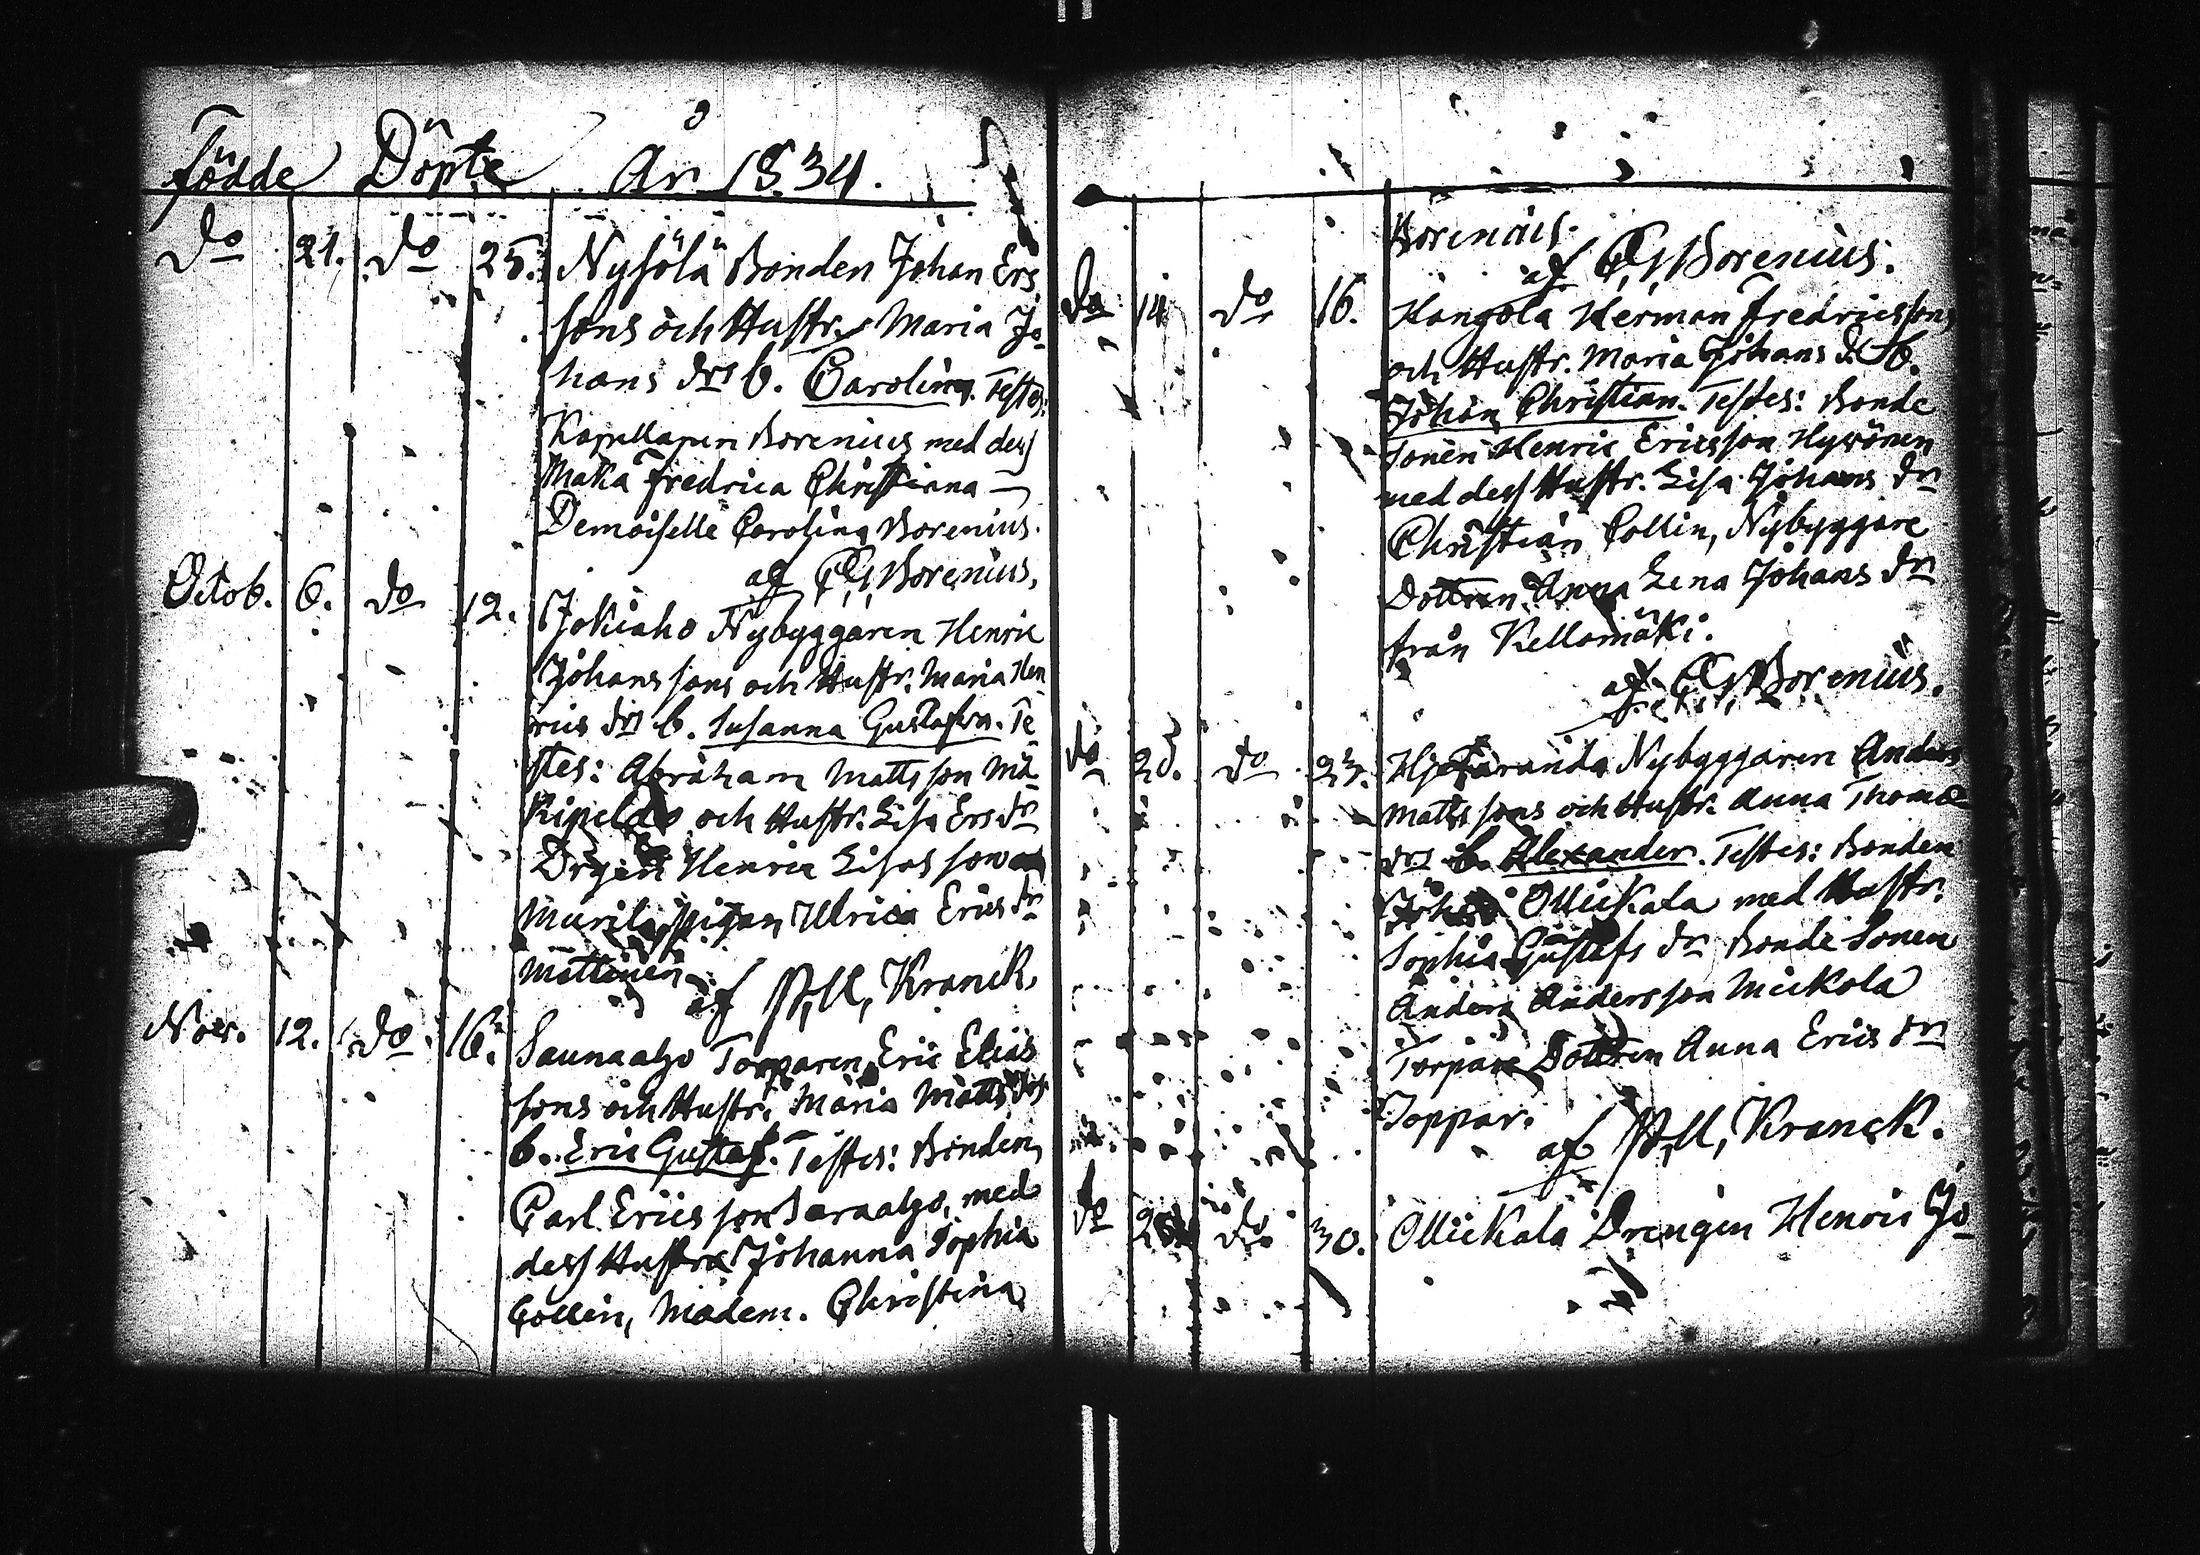 Födde Döpte År 1834.
Do 21. Do 25. Nysölä Bonden Johan Ers
sons och Hustr. Maria Jo-
hans drs b. Carolina. Testes:
Kapellanen Borenius med dess
Maka Fredrica Christina —
Demoiselle Carolina Borenius.
af C. G. Borenius.
Octob. 6. Do 12. Jokiaho Nybyggaren Henric
Johanssons och Hustr. Maria Hen
rics drs b. Susanna Gustafva. Te
stes: Abraham Mattsson Mä
Kipeldo och Hustr. Lisa Ers dr
Drgen Henric Lisas son
Murila, pigan Ulrica Erics dr
Mattinen
af P. U. Kranck.
Nov. 12. Do 16. Saunaaho Torparen Eric Elias
sons och Hustr. Maria Matts drs
b. Eric Gustaf. Testes: Bonden
Carl Ericsson Saraaho, med
dess Hustru Johanna Sophia
Collin, Madem. Christina
Borenius.
af C. G. Borenius.
Do 14 Do 16. Kangola Herman Fredricssons
och Hustr. Maria Johans d. b.
Johan Christian. Testes: Bonde
Sonen Henric Ericsson Hyvönen
med dess Hustr. Lisa Johans dr
Christian Collin, Nybyggare
Dottren Anna Lena Johans dr
från Kellomäki.
af C. G. Borenius.
do 20. do 23. Nybyggaren Anders
Mattssons och Hustr. Anna Thomæ
drs b. Alexander. Testes: Bonden
Johan Ollickala med Hustr.
Sophia Gustafs dr Bonde Sonen
Anders Andersson Mickola
Torpare Dottren Anna Erics dr
Toppar.
af P. U. Kranck.
do do 30. Ollickala Drengen Henric Jo-